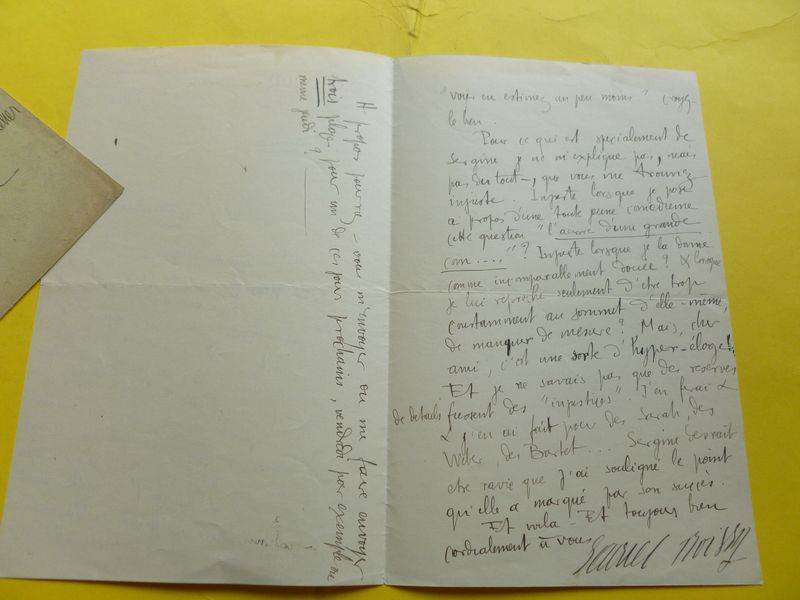 voyez en estimez un peu moins" Croyez-
le bien.
Pour ce qui est spécialement de
Sergine je ne m'explique pas, mais
pas du tout –, que vous me trouviez
injuste. Injuste lorsque je pose
à propos d'une toute jeune comédienne
cette question "l'aurore d'une grande
com....."? Injuste lorsque je la donne
comme incomparablement douée? & lorsque
je lui reproche seulement d'être trop
constamment au sommet d'elle-même,
de manquer de mesure? Mais, cher
ami, c'est une sorte d'hyper-éloge!
Et je ne savais pas que des réserves
de détails fussent des "injustices". J'en ferai &
& j'en ai fait pour des Sarah, des
Weber, des Bartet... Sergine devrait
être ravie que j'ai souligné le point
qu'elle a marqué par son succès.
Et voilà – Et toujours bien
cordialement à vous
A propos pourriez-vous m'envoyer ou me faire envoyer
trois places pour un de ces jours prochains, vendredi par exemple ou
même jeudi?